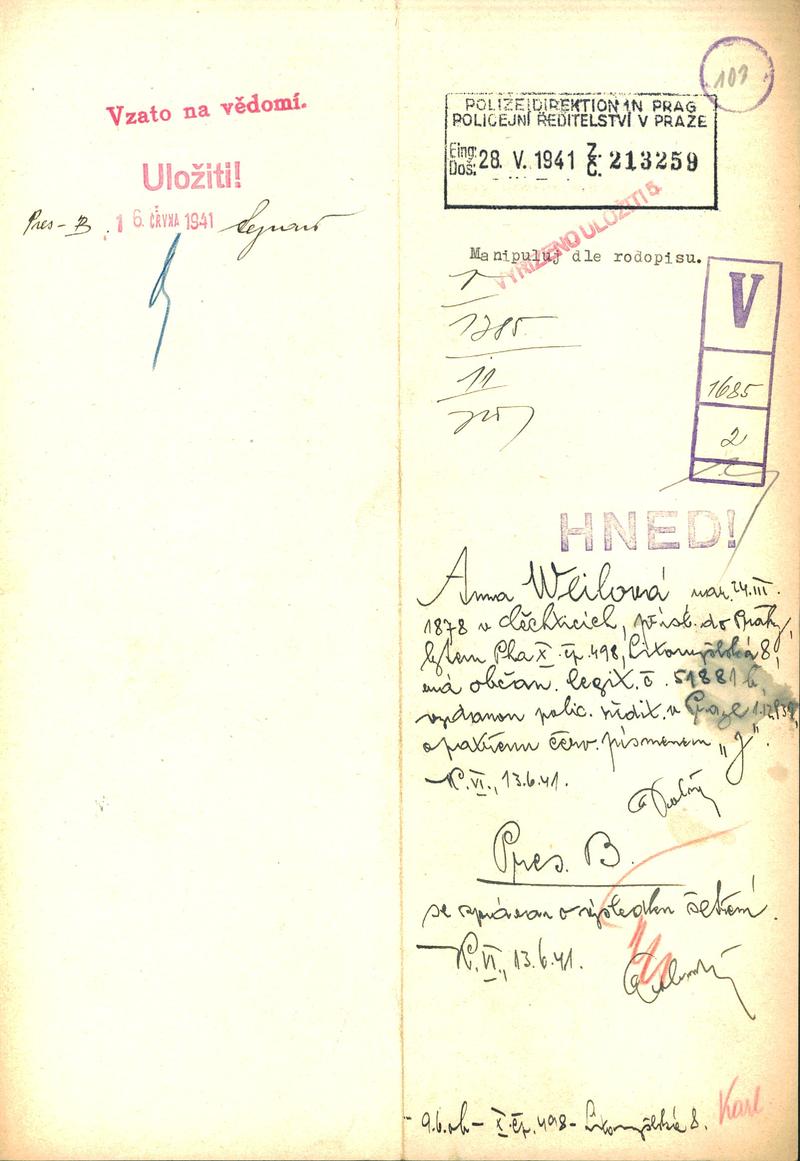 Vzato na vědomí.
Uložiti!
Pres-B. 16. ČRVNA 1941
103
POLIZEIDIREKTION IN PRAG
POLICEJNÍ ŘEDITELSTVÍ V PRAZE
Eing. Doš. 28. V. 1941 Z. Č. 213259
VYŘÍZENO ULOŽITI 5
Manipuluj dle rodopisu.
1
1785
11
V
1685
2
HNED!
Anna Weilová nar. 24.III.
1878 v Děchticích, přísl. do Prahy,
bytem Pha X. čp. 498, Litomyšlská 8,
má občan. legit. č. 51881
vydanou polic. ředit. v Praze 1.12.939,
opatřenu červ. písmenem „J".
K.VI., 13.6.41.
Pres. B.
se zprávou o výsledku šetření.
K.VI., 13.6.41.
9.6. ob - X. čp. 498 - Litomyšlská 8.
Karl